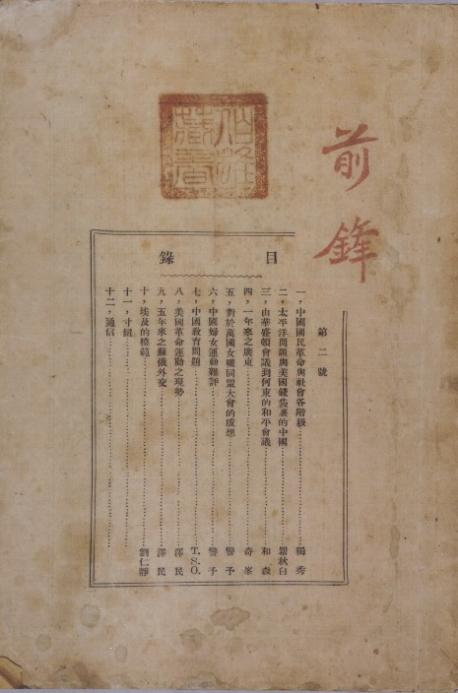 前鋒
第二號
目錄
一，中國國民革命與社會各階級 獨秀
二，太平洋問題與美國錢袋裏的中國 瞿秋白
三，由華盛頓會議到何東的和平會議 和森
四，一年來之廣東 奇峯
五，對於萬國女權同盟大會的感想 警予
六，中國婦女運動雜評 警予
七，中國教育問題 T.S.O.
八，美國革命運動之現勢 澤民
九，五年來之蘇俄外交 澤民
十，埃及的模範 劉仁靜
十一，寸鐵
十二，通信